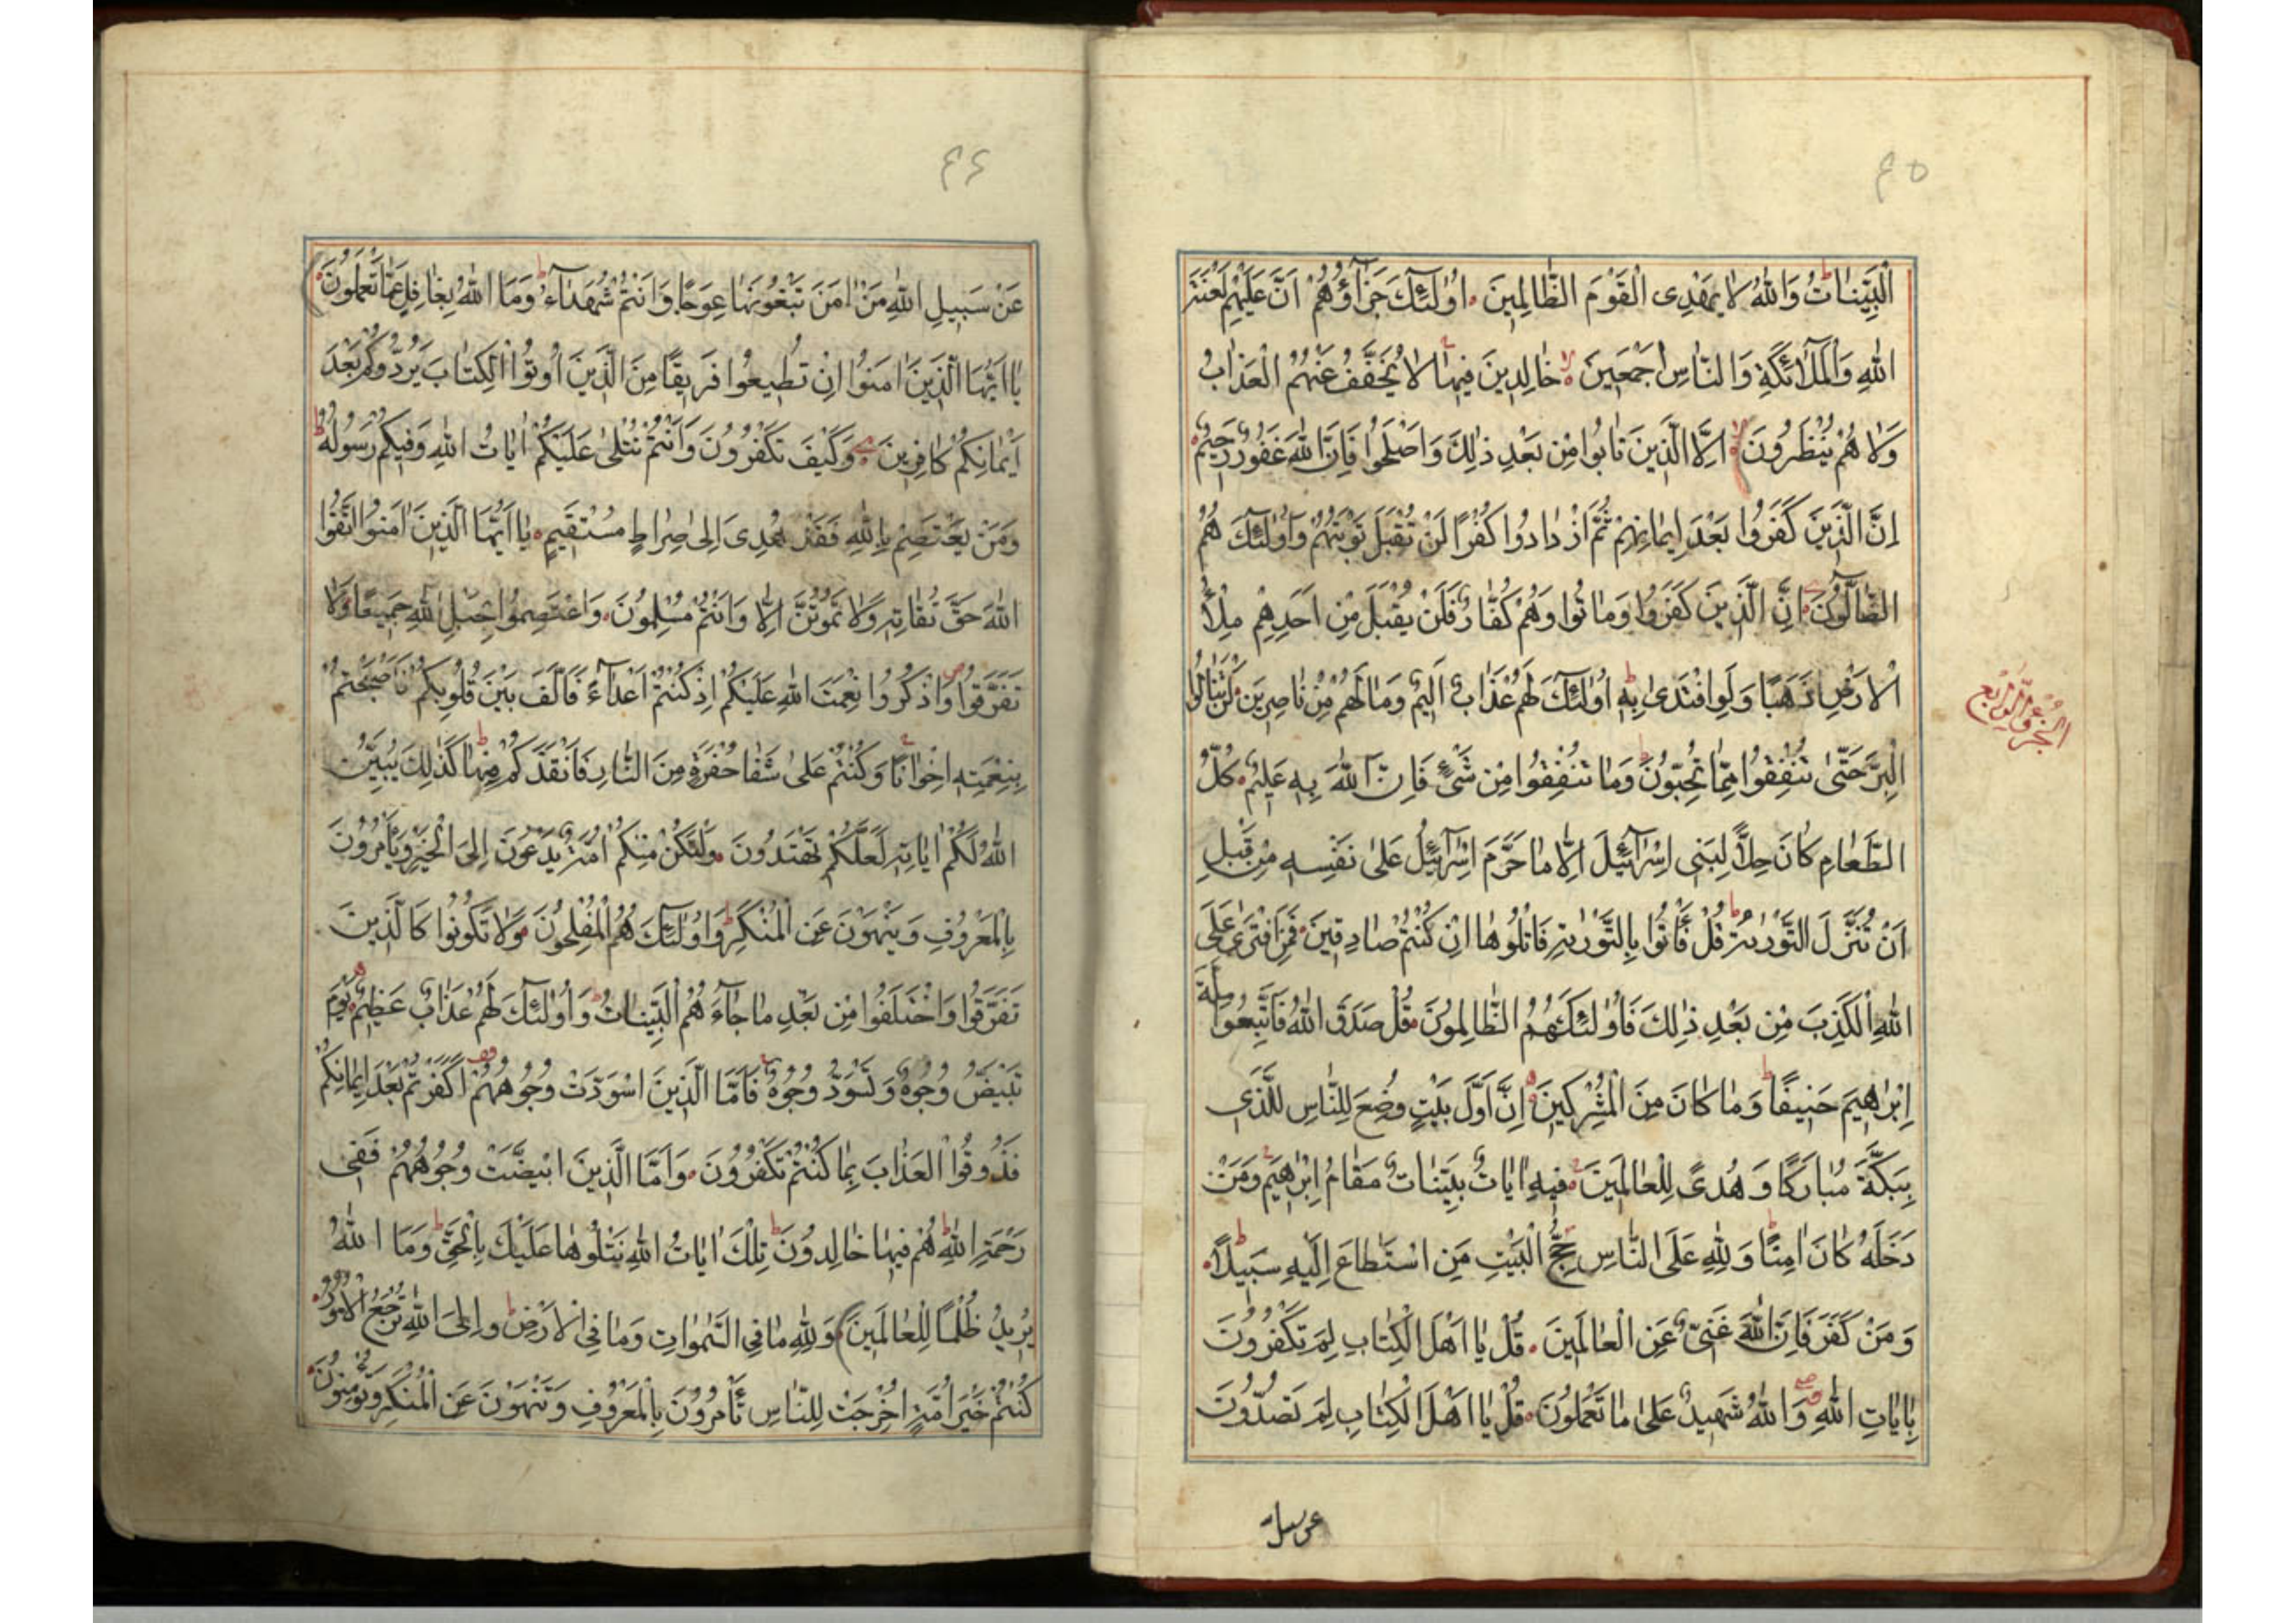 ٤٥
الْبَيِّنَاتُ وَاللّٰهُ لَا يَهْدِى الْقَوْمَ الظَّالِمِينَ اُولٰئِكَ جَزَآؤُهُمْ اَنَّ عَلَيْهِمْ لَعْنَةَ
اللّٰهِ وَالْمَلَآئِكَةِ وَالنَّاسِ اَجْمَعِينَ خَالِدِينَ فِيهَا لَا يُخَفَّفُ عَنْهُمُ الْعَذَابُ
وَلَا هُمْ يُنْظَرُونَ اِلَّا الَّذِينَ تَابُوا مِنْ بَعْدِ ذٰلِكَ وَاَصْلَحُوا فَاِنَّ اللّٰهَ غَفُورٌ رَحِيمٌ
اِنَّ الَّذِينَ كَفَرُوا بَعْدَ اِيمَانِهِمْ ثُمَّ ازْدَادُوا كُفْرًا لَنْ تُقْبَلَ تَوْبَتُهُمْ وَاُولٰئِكَ هُمُ
الضَّآلُّونَ اِنَّ الَّذِينَ كَفَرُوا وَمَاتُوا وَهُمْ كُفَّارٌ فَلَنْ يُقْبَلَ مِنْ اَحَدِهِمْ مِلْأُ
الْاَرْضِ ذَهَبًا وَلَوِ افْتَدٰى بِهِ اُولٰئِكَ لَهُمْ عَذَابٌ اَلِيمٌ وَمَا لَهُمْ مِنْ نَاصِرِينَ لَنْ تَنَالُوا
الْبِرَّ حَتّٰى تُنْفِقُوا مِمَّا تُحِبُّونَ وَمَا تُنْفِقُوا مِنْ شَىْءٍ فَاِنَّ اللّٰهَ بِهِ عَلِيمٌ كُلُّ
الطَّعَامِ كَانَ حِلًّا لِبَنِى اِسْرَآئِيلَ اِلَّا مَا حَرَّمَ اِسْرَآئِيلُ عَلٰى نَفْسِهِ مِنْ قَبْلِ
اَنْ تُنَزَّلَ التَّوْرٰيةُ قُلْ فَأْتُوا بِالتَّوْرٰيةِ فَاتْلُوهَا اِنْ كُنْتُمْ صَادِقِينَ فَمَنِ افْتَرٰى عَلَى
اللّٰهِ الْكَذِبَ مِنْ بَعْدِ ذٰلِكَ فَاُولٰئِكَ هُمُ الظَّالِمُونَ قُلْ صَدَقَ اللّٰهُ فَاتَّبِعُوا مِلَّةَ
اِبْرٰهِيمَ حَنِيفًا وَمَا كَانَ مِنَ الْمُشْرِكِينَ اِنَّ اَوَّلَ بَيْتٍ وُضِعَ لِلنَّاسِ لَلَّذِى
بِبَكَّةَ مُبَارَكًا وَهُدًى لِلْعَالَمِينَ فِيهِ اٰيَاتٌ بَيِّنَاتٌ مَقَامُ اِبْرٰهِيمَ وَمَنْ
دَخَلَهُ كَانَ اٰمِنًا وَلِلّٰهِ عَلَى النَّاسِ حِجُّ الْبَيْتِ مَنِ اسْتَطَاعَ اِلَيْهِ سَبِيلًا
وَمَنْ كَفَرَ فَاِنَّ اللّٰهَ غَنِىٌّ عَنِ الْعَالَمِينَ قُلْ يَا اَهْلَ الْكِتَابِ لِمَ تَكْفُرُونَ
بِاٰيَاتِ اللّٰهِ وَاللّٰهُ شَهِيدٌ عَلٰى مَا تَعْمَلُونَ قُلْ يَا اَهْلَ الْكِتَابِ لِمَ تَصُدُّونَ
عن سبيل
الجزؤ الرابع
٤٦
عَنْ سَبِيلِ اللّٰهِ مَنْ اٰمَنَ تَبْغُونَهَا عِوَجًا وَاَنْتُمْ شُهَدَآءُ وَمَا اللّٰهُ بِغَافِلٍ عَمَّا تَعْمَلُونَ
يَا اَيُّهَا الَّذِينَ اٰمَنُوا اِنْ تُطِيعُوا فَرِيقًا مِنَ الَّذِينَ اُوتُوا الْكِتَابَ يَرُدُّوكُمْ بَعْدَ
اِيْمَانِكُمْ كَافِرِينَ وَكَيْفَ تَكْفُرُونَ وَاَنْتُمْ تُتْلٰى عَلَيْكُمْ اٰيَاتُ اللّٰهِ وَفِيكُمْ رَسُولُهُ
وَمَنْ يَعْتَصِمْ بِاللّٰهِ فَقَدْ هُدِىَ اِلٰى صِرَاطٍ مُسْتَقِيمٍ يَا اَيُّهَا الَّذِينَ اٰمَنُوا اتَّقُوا
اللّٰهَ حَقَّ تُقَاتِهِ وَلَا تَمُوتُنَّ اِلَّا وَاَنْتُمْ مُسْلِمُونَ وَاعْتَصِمُوا بِحَبْلِ اللّٰهِ جَمِيعًا وَلَا
تَفَرَّقُوا وَاذْكُرُوا نِعْمَتَ اللّٰهِ عَلَيْكُمْ اِذْ كُنْتُمْ اَعْدَآءً فَاَلَّفَ بَيْنَ قُلُوبِكُمْ فَاَصْبَحْتُمْ
بِنِعْمَتِهِ اِخْوَانًا وَكُنْتُمْ عَلٰى شَفَا حُفْرَةٍ مِنَ النَّارِ فَاَنْقَذَكُمْ مِنْهَا كَذٰلِكَ يُبَيِّنُ
اللّٰهُ لَكُمْ اٰيَاتِهِ لَعَلَّكُمْ تَهْتَدُونَ وَلْتَكُنْ مِنْكُمْ اُمَّةٌ يَدْعُونَ اِلَى الْخَيْرِ وَيَأْمُرُونَ
بِالْمَعْرُوفِ وَيَنْهَوْنَ عَنِ الْمُنْكَرِ وَاُولٰئِكَ هُمُ الْمُفْلِحُونَ وَلَا تَكُونُوا كَالَّذِينَ
تَفَرَّقُوا وَاخْتَلَفُوا مِنْ بَعْدِ مَا جَآءَهُمُ الْبَيِّنَاتُ وَاُولٰئِكَ لَهُمْ عَذَابٌ عَظِيمٌ يَوْمَ
تَبْيَضُّ وُجُوهٌ وَتَسْوَدُّ وُجُوهٌ فَاَمَّا الَّذِينَ اسْوَدَّتْ وُجُوهُهُمْ اَكَفَرْتُمْ بَعْدَ اِيمَانِكُمْ
فَذُوقُوا الْعَذَابَ بِمَا كُنْتُمْ تَكْفُرُونَ وَاَمَّا الَّذِينَ ابْيَضَّتْ وُجُوهُهُمْ فَفِى
رَحْمَةِ اللّٰهِ هُمْ فِيهَا خَالِدُونَ تِلْكَ اٰيَاتُ اللّٰهِ نَتْلُوهَا عَلَيْكَ بِالْحَقِّ وَمَا اللّٰهُ
يُرِيدُ ظُلْمًا لِلْعَالَمِينَ وَلِلّٰهِ مَا فِى السَّمٰوَاتِ وَمَا فِى الْاَرْضِ وَاِلَى اللّٰهِ تُرْجَعُ الْاُمُورُ
كُنْتُمْ خَيْرَ اُمَّةٍ اُخْرِجَتْ لِلنَّاسِ تَأْمُرُونَ بِالْمَعْرُوفِ وَتَنْهَوْنَ عَنِ الْمُنْكَرِ وَتُؤْمِنُونَ